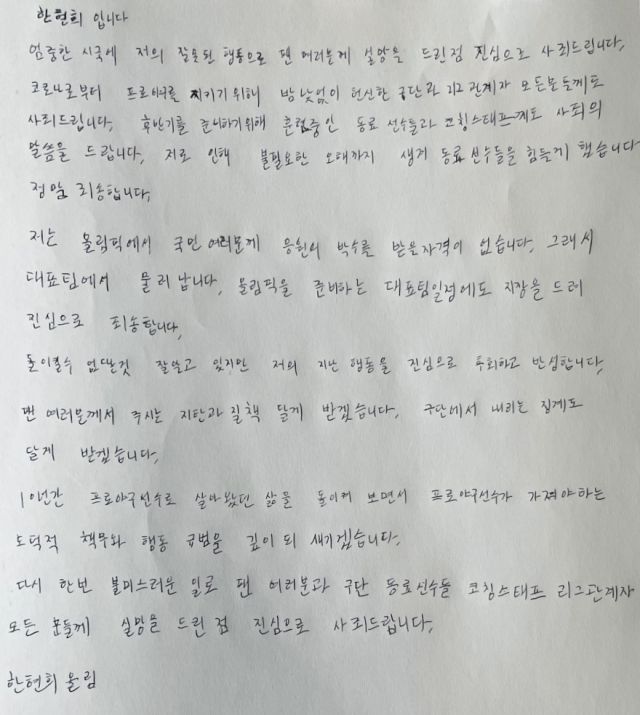 한현희 입니다
엄중한 시국에 저의 잘못된 행동으로 팬 여러분께 실망을 드린점 진심으로 사죄드립니다.
코로나로부터 프로야구를 지키기위해 밤낮없이 헌신한 구단과 리그관계자 모든분들께도
사죄드립니다. 후반기를 준비하기위해 훈련중인 동료 선수들과 코칭스태프께도 사죄의
말씀을 드립니다. 저로 인해 불필요한 오해까지 생겨 동료선수들을 힘들게 했습니다
정말 죄송합니다.
저는 올림픽에서 국민여러분께 응원의 박수를 받을자격이 없습니다. 그래서
대표팀에서 물러납니다. 올림픽을 준비하는 대표팀일정에도 지장을 드려
진심으로 죄송합니다.
돌이킬수 없단것 잘알고 있지만 저의 지난 행동을 진심으로 후회하고 반성합니다.
팬 여러분께서 주시는 지탄과 질책 달게 받겠습니다. 구단에서 내리는 징계도
달게 받겠습니다.
10년간 프로야구선수로 살아왔던 삶을 돌이켜 보면서 프로야구선수가 가져야하는
도덕적 책무와 행동 규범을 깊이 되 새기겠습니다.
다시 한번 불미스러운 일로 팬 여러분과 구단 동료선수들 코칭스태프 리그관계자
모든 분들께 실망을 드린 점 진심으로 사죄드립니다.
한현희 올림